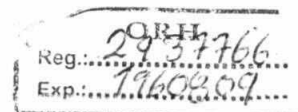 ORH
Reg.: 2937766
Exp.: 1960809